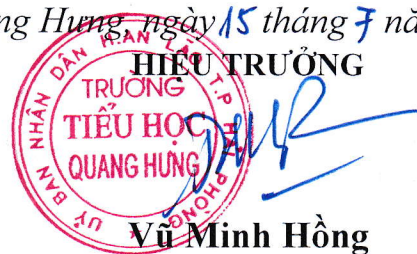 ng Hưng, ngày 15 tháng 7 nă
HIỆU TRƯỞNG
ỦY BAN NHÂN DÂN H.AN LÃO T.P HẢI PHÒNG
TRƯỜNG
TIỂU HỌC
QUANG HƯNG
Vũ Minh Hồng